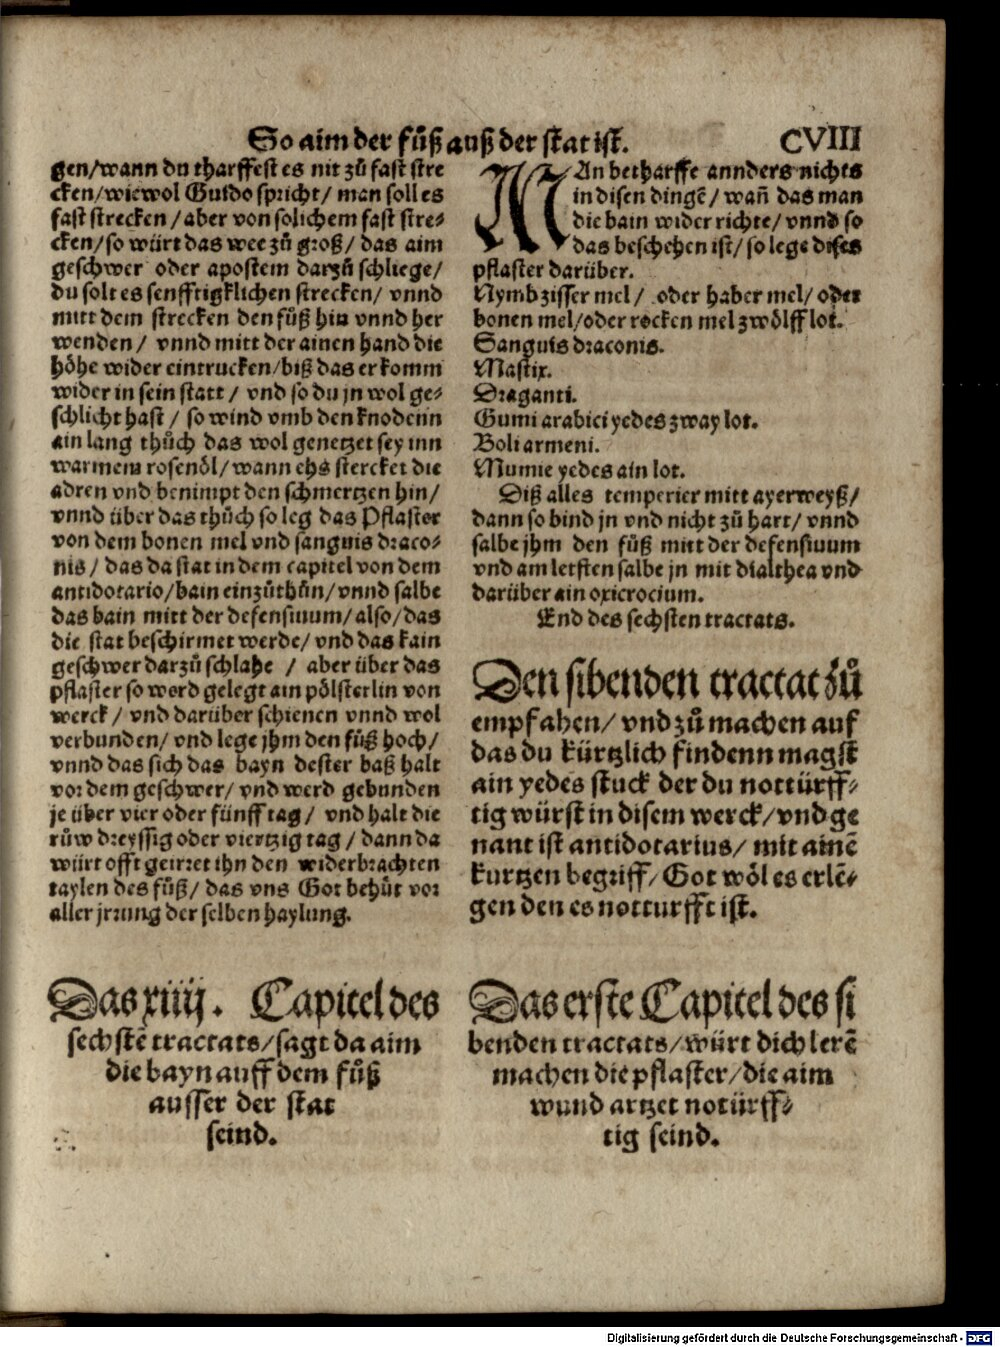 So aim der fůß auß der stat ist. CVIII
gen/wann du tharffest es nit zů fast stre
cken/wiewol Guido spricht/ man soll es
fast strecken/aber von solichem fast stre⸗
cken/so würt das wee zů groß/ das aim
geschwer oder apostem darzů schliege/
du solt es senfftigklichen strecken/ vnnd
mitt dem strecken den fůß hin vnnd her
wenden/ vnnd mitt der ainen hand die
höhe wider eintrucken/biß das er komm
wider in sein statt/ vnd so du jn wol ge⸗
schlicht hast/ so wind vmb den knodenn
ain lang thůch das wol genetzet sey inn
warmem rosenöl/wann ehs stercket die
adren vnd benimpt den schmertzen hin/
vnnd über das thůch so leg das Pflaster
von dem bonen mel vnd sanguis draco⸗
nis/ das da stat in dem capitel von dem
antidotario/bain einzůthůn/vnnd salbe
das bain mitt der defensiuum/also/das
die stat beschirmet werde/vnd das kain
geschwer darzů schlahe / aber über das
pflaster so werd gelegt ain pölsterlin von
werck/ vnd darüber schienen vnnd wol
verbunden/vnd lege jhm den fůß hoch/
vnnd das sich das bayn dester baß halt
vor dem geschwer/vnd werd gebunden
je über vier oder fünff tag/ vnd halt die
růw dreyssig oder viertzig tag/dann da
würt offt geirret ihn den widerbrachten
taylen des fůß/ das vns Got behüt vor
aller jrrung der selben haylung.
Das xiiij. Capitel des
sechstē tractats/sagt da aim
die bayn auff dem fůß
ausser der stat
seind.
MAn betharffe annders nichts
in disen dingē/ wañ das man
die bain wider richte/vnnd so
das beschehen ist/so lege dises
pflaster darüber.
Nymb zisser mel/ oder haber mel/oder
bonen mel/oder rocken mel zwölff lot.
Sanguis draconis.
Mastix.
Draganti.
Gumi arabici yedes zway lot.
Boli armeni.
Mumie yedes ain lot.
Diß alles temperier mitt ayerweyß/
dann so bind jn vnd nicht zů hart/vnnd
salbe jhm den fůß mitt der defensiuum
vnd am letsten salbe jn mit dialthea vnd
darüber ain oxicrocium.
End des sechsten tractats.
Den sibenden tractat zů
empfahen/ vnd zů machen auf
das du kürtzlich findenn magst
ain yedes stuck der du nottürff⸗
tig würst in disem werck/vnd ge
nant ist antidotarius/ mit ainē
kurtzen begriff/Got wöl es erlē⸗
gen den es notturfft ist.
Das erste Capitel des si
benden tractats/würt dich lerē
machen die pflaster/die aim
wund artzet notürff⸗
tig seind.
Digitalisierung gefördert durch die Deutsche Forschungsgemeinschaft - DFG